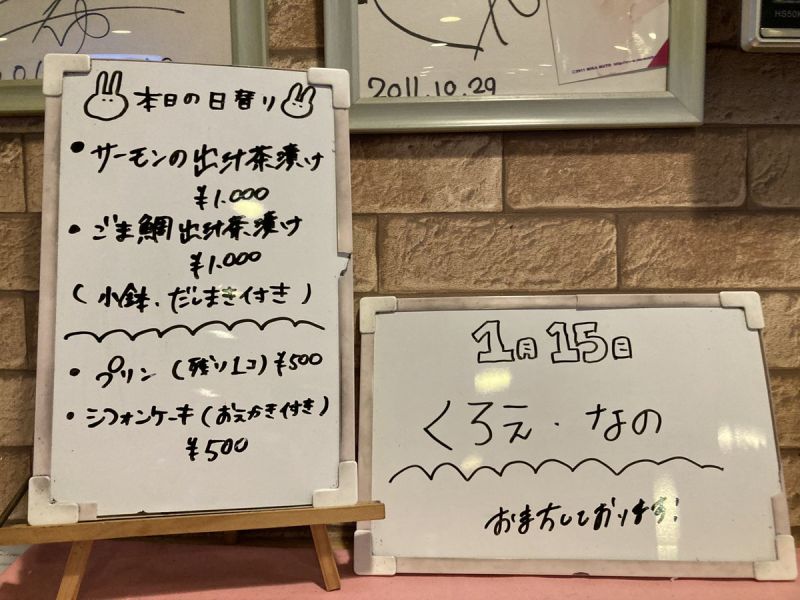 本日の日替り
・サーモンの出汁茶漬け
¥1.000
・ごま鯛出汁茶漬け
¥1.000
(小鉢.だしまき付き)
・プリン(残り1コ)¥500
・シフォンケーキ(おえかき付き)
¥500
2011.10.29
1月15日
くろえ.なの
おまちしております!
HS50